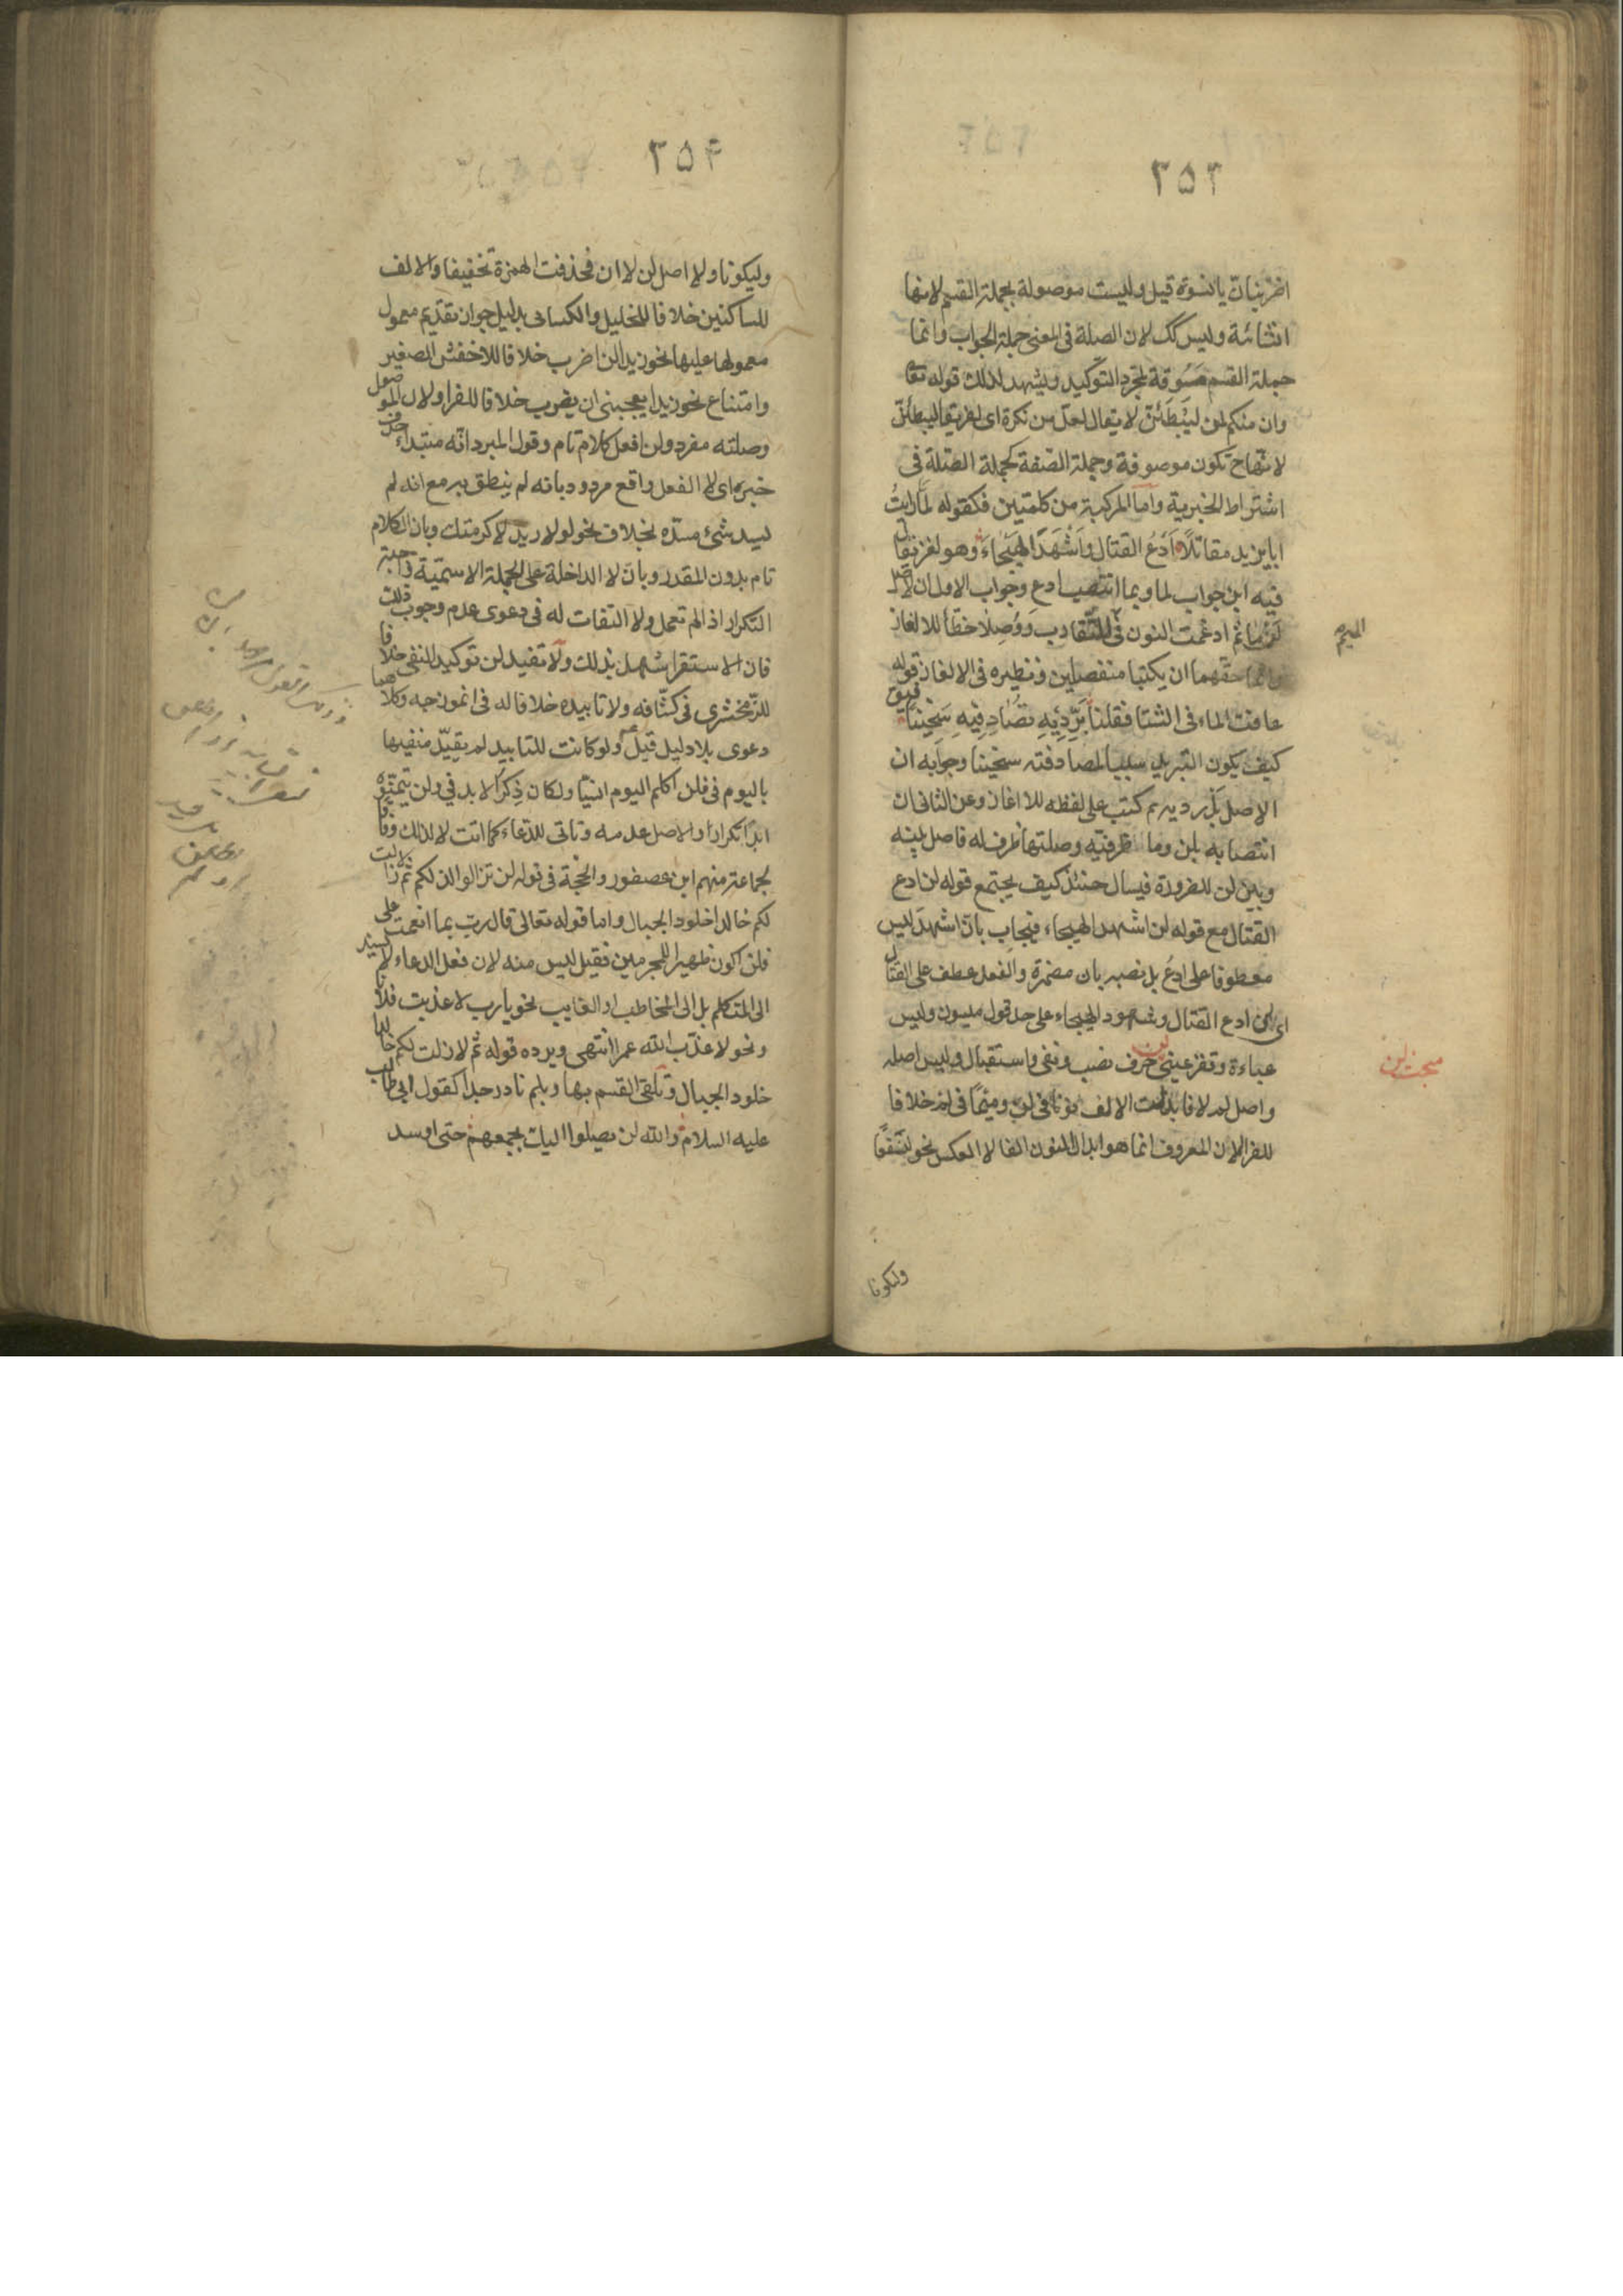 ٣٥٣
اضربنان يا نسوة قيل وليست موصولة بجملة القسم لانها
انشائية وليس كك لان الصلة في المعنى جملة الجواب وانما
جملة القسم مسوقة لمجرد التوكيد ويشهد لذلك قوله تعا
وان منكم لمن ليبطئن لا يقال لعل من نكرة اى لفريقا ليبطئن
لانها ح تكون موصوفة وجملة الصفة كجملة الصلة في
اشتراط الخبرية واما المركبة من كلمتين فكقوله لما رايتُ
ابا يزيد مقاتلًا اَدَعُ القتال واَشْهَدَ الهيجاءَ وهو لغز يقال
فيه اين جواب لما وبما انتصب ادع وجواب الاول ان الاصل
لَنْ ما ثم ادغمت النون في الميم للتقارب ووُصِلا خطأ للالغاز
وانما حقهما ان يكتبا منفصلين ونظيره في الالغاز قوله
عافت الماء في الشتا فقلنا بَرِّدِيْهِ تُصَادِفِيهِ سَخِينًا فيق
كيف يكون التبريد سببا لمصادفته سخينا وجوابه ان
الاصل بَلْ رديه ثم كتب على لفظه للالغاز وعن الثاني ان
انتصابه بلن وما ظرفية وصلتها ظرف له فاصل بينه
وبين لن للضرورة فيسال حنئذ كيف يجتمع قوله لن ادع
القتال مع قوله لن اشهد الهيجاء فيجاب بان اشهد ليس
معطوفا على ادعُ بل نصبه بان مضمرة والفعل عطف على القتال
اى لن ادع القتال وشهود الهيجاء على حد قول ميسون ولبس
عباءة وتقر عيني لن حرف نصب ونفى واستقبال وليس اصله
واصل لم لا فابدلت الالف نونا في لن وميمًا في لم خلافا
للفرا لان المعروف انما هو ابدال النون الفا لا العكس نحو لنسفعًا
وليكونا
مبحث لن
٣٥۴
وليكونا ولا اصل لن لا ان فحذفت الهمزة تخفيفا والالف
للساكنين خلافا للخليل والكسائى بدليل جواز تقديم معمول
معمولها عليها نحو زيدا لن اضرب خلافا للاخفش الصغير
وامتناع نحو زيدا يعجبنى ان يضرب خلافا للفرا ولان الموصول
وصلته مفرد ولن افعل كلام تام وقول المبرد انّه مبتداء حذف
خبره اى لا الفعل واقع مردود بانه لم ينطق به مع انه لم
يسد شئ مسدّه بخلاف نحو لولا زيد لاكرمتك وبان الكلام
تام بدون المقدر وبان لا الداخلة على الجملة الاسميّة واجبة
التكرار اذا لم تعمل ولا التفات له في دعوى عدم وجوب ذلك
فان الاستقرا شهد بذلك ولا تفيد لن توكيد النفى خلافا
للزّمخشرى في كشّافه ولا تابيده خلافا له في انموذجه وكلاهما
دعوى بلا دليل قيل ولو كانت للتابيد لم يقيّد منفيها
باليوم في فلن اكلم اليوم انسيّا ولكان ذِكرُ الابد في ولن يتمنّوه
ابدًا تكرارًا والاصل عدمه وتاتى للدعاء كما اتت لا لذلك وفاقا
لجماعة منهم ابن عصفور والحجّة في قوله لن تزالوا كذلكم ثم لا زلت
لكم خالدا خلود الجبال واما قوله تعالى قال رب بما انعمت على
فلن اكون ظهيرا للمجرمين فقيل ليس منه لان فعل الدعاء لا يسند
الى المتكلم بل الى المخاطب او الغايب نحو يا رب لا عذبت فلانا
ونحو لا عذّب الله عمرا انتهى ويرده قوله ثم لا زلت لكم خالدا
خلود الجبال وتلقى القسم بها وبلم نادر جدا كقول ابى طالب
عليه السلام والله لن يصلوا اليك بجمعهم حتى اوسد